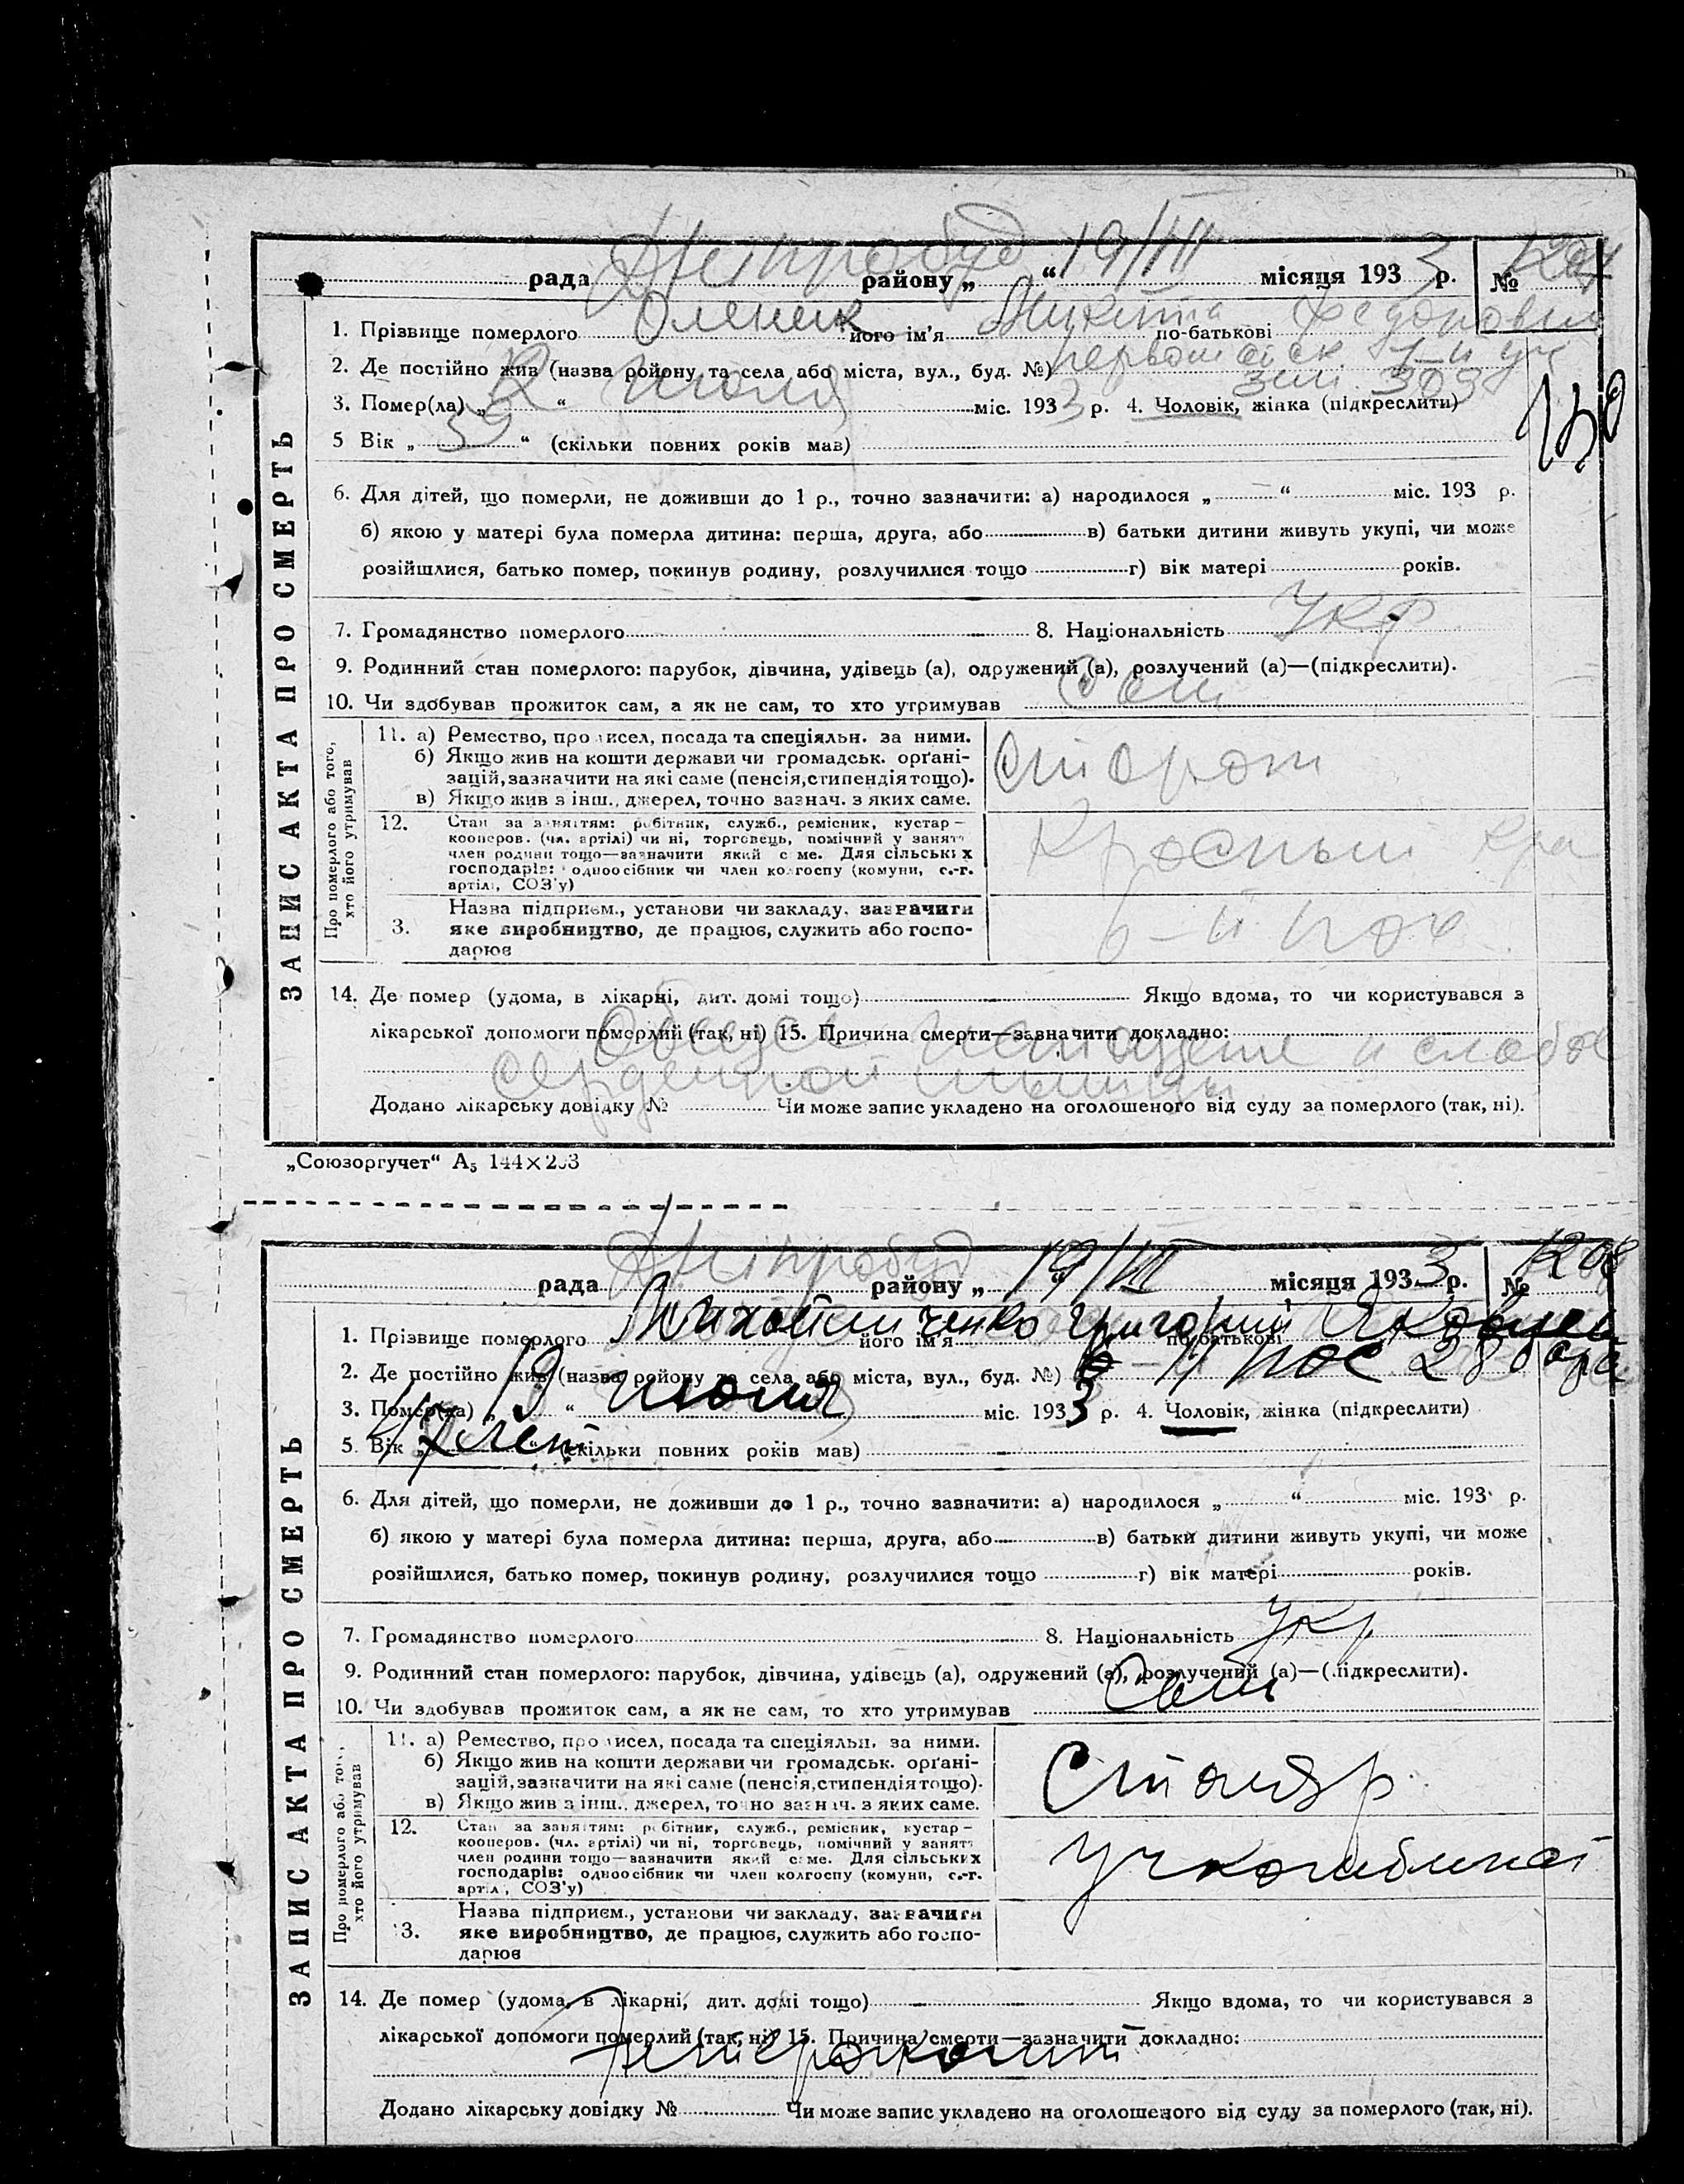 ЗАПИС АКТА ПРО СМЕРТЬ
рада Дніпробуд району „ “ 19/VII місяця 1933 р. №
1. Прізвище померлого Оленик його ім'я Микита по-батькові Федорович
2. Де постійно жив (назва району та села або міста, вул., буд. №) первомайск 1-й уч
зем. 303
3. Помер(ла) „ “ июля міс. 1933 р. 4. Чоловік, жінка (підкреслити)
150
5 Вік „ 59 “ (скільки повних років мав)
6. Для дітей, що померли, не доживши до 1 р., точно зазначити: а) народилося „ “ міс. 193 р.
б) якою у матері була померла дитина: перша, друга, або в) батьки дитини живуть укупі, чи може
розійшлися, батько помер, покинув родину, розлучилися тощо г) вік матері років.
7. Громадянство померлого 8. Національність Укр
9. Родинний стан померлого: парубок, дівчина, удівець (а), одружений (а), розлучений (а)—(підкреслити).
10. Чи здобував прожиток сам, а як не сам, то хто утримував Сам
Про померлого або того, хто його утримував
11. а) Ремество, промисел, посада та спеціяльн. за ними.
б) Якщо жив на кошти держави чи громадськ. орґані-
зацій, зазначити на які саме (пенсія, стипендія тощо).
в) Якщо жив з інш., джерел, точно зазнач. з яких саме.
Сторож
12. Стан за заняттям: робітник, служб., ремісник, кустар—
кооперов. (чл. артілі) чи ні, торговець, помічний у занятт
член родини тощо—зазначити який саме. Для сільських
господарів: одноосібник чи член колгоспу (комуни, с.-г.
артілі, СОЗ'у)
Красный
3. Назва підприєм., установи чи закладу, зазначити
яке виробництво, де працює, служить або госпо-
дарює
6-й пос
14. Де помер (удома, в лікарні, дит. домі тощо) Якщо вдома, то чи користувався з
лікарської допомоги померлий (так, ні) 15. Причина смерти—зазначити докладно:
Общее истощение и слабос
сердечной мышцы
Додано лікарську довідку № Чи може запис укладено на оголошеного від суду за померлого (так, ні).
„Союзоргучет“ А₅ 144×203
ЗАПИС АКТА ПРО СМЕРТЬ
рада Дніпробуд району „ 19/VII місяця 1933 р. № 1208
1. Прізвище померлого його ім'я Григорий по-батькові
2. Де постійно жив (назва району та села або міста, вул., буд. №) 6-й пос 28
3. Помер(ла) „ 19 “ июля міс. 1933 р. 4. Чоловік, жінка (підкреслити)
5. Вік „ лет “ (скільки повних років мав)
6. Для дітей, що померли, не доживши до 1 р., точно зазначити: а) народилося „ “ міс. 193 р.
б) якою у матері була померла дитина: перша, друга, або в) батьки дитини живуть укупі, чи може
розійшлися, батько помер, покинув родину, розлучилися тощо г) вік матері років.
7. Громадянство померлого 8. Національність Укр
9. Родинний стан померлого: парубок, дівчина, удівець (а), одружений (а), розлучений (а)—(підкреслити).
10. Чи здобував прожиток сам, а як не сам, то хто утримував Сам
Про померлого або того, хто його утримував
11. а) Ремество, промисел, посада та спеціяльн. за ними.
б) Якщо жив на кошти держави чи громадськ. орґані-
зацій, зазначити на які саме (пенсія, стипендія тощо).
в) Якщо жив з інш., джерел, точно зазнач. з яких саме.
Столяр
12. Стан за заняттям: робітник, служб., ремісник, кустар—
кооперов. (чл. артілі) чи ні, торговець, помічний у занятт
член родини тощо—зазначити який саме. Для сільських
господарів: одноосібник чи член колгоспу (комуни, с.-г.
артілі, СОЗ'у)
3. Назва підприєм., установи чи закладу, зазначити
яке виробництво, де працює, служить або госпо-
дарює
14. Де помер (удома, в лікарні, дит. домі тощо) Якщо вдома, то чи користувався з
лікарської допомоги померлий (так, ні) 15. Причина смерти—зазначити докладно:
Энтероколит
Додано лікарську довідку № Чи може запис укладено на оголошеного від суду за померлого (так, ні).